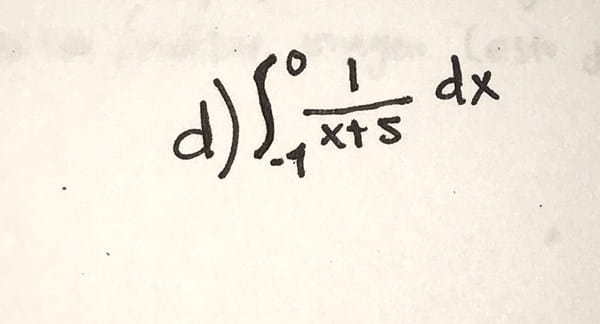 d) ∫_{-1}^{0} \frac{1}{x+5} dx